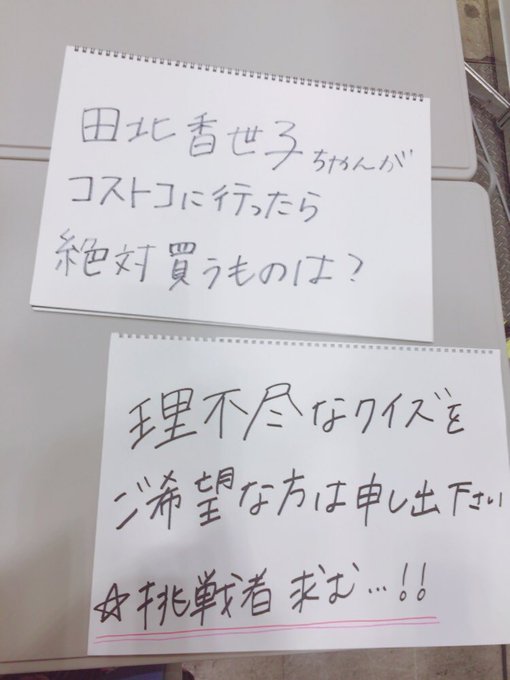 田北香世子ちゃんが
コストコに行ったら
絶対買うものは?
理不尽なクイズを
ご希望な方は申し出下さい
☆挑戦者求む…!!